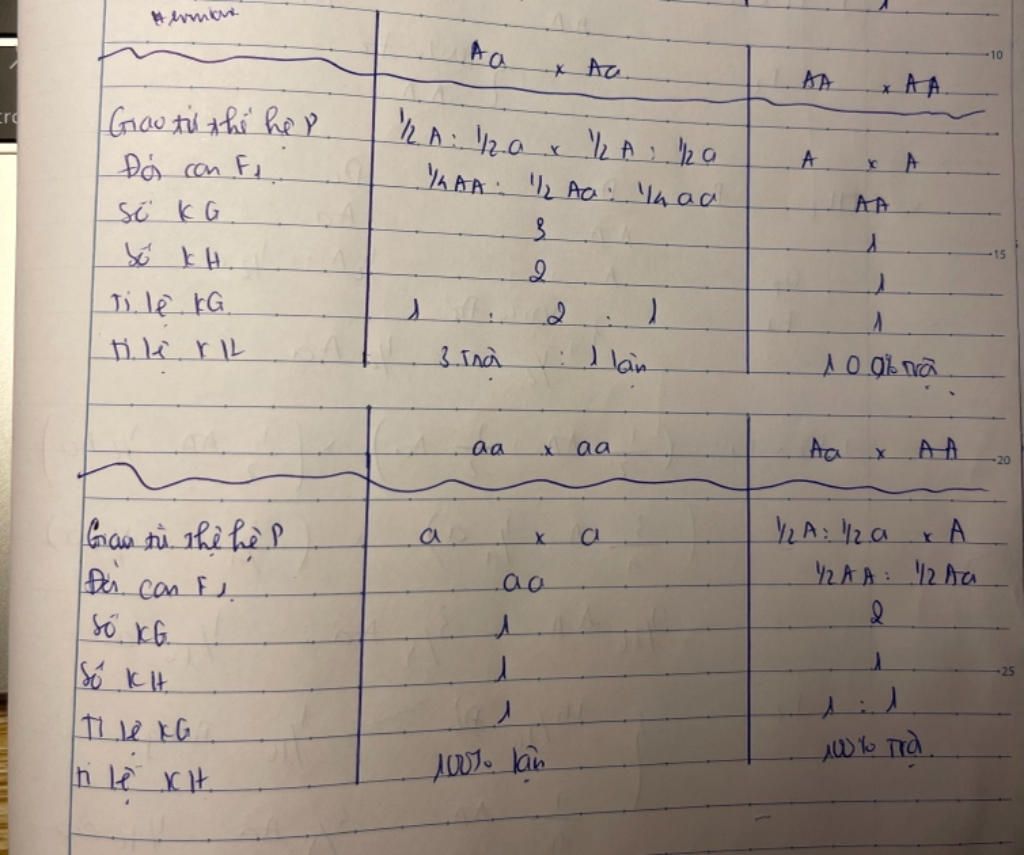 Aa x Aa AA x AA
Giao tử thế hệ P 1/2 A : 1/2 a x 1/2 A : 1/2 a A x A
Đời con F1 1/4 AA : 1/2 Aa : 1/4 aa AA
Số KG 3 1
Số KH 2 1
Tỉ lệ KG 1 : 2 : 1 1
Tỉ lệ KH 3 Trội : 1 lặn 100% Trội
aa x aa Aa x AA
Giao tử thế hệ P a x a 1/2 A : 1/2 a x A
Đời con F1 aa 1/2 AA : 1/2 Aa
Số KG 1 2
Số KH 1 1
Tỉ lệ KG 1 1 : 1
Tỉ lệ KH 100% lặn 100% Trội
10
15
20
25